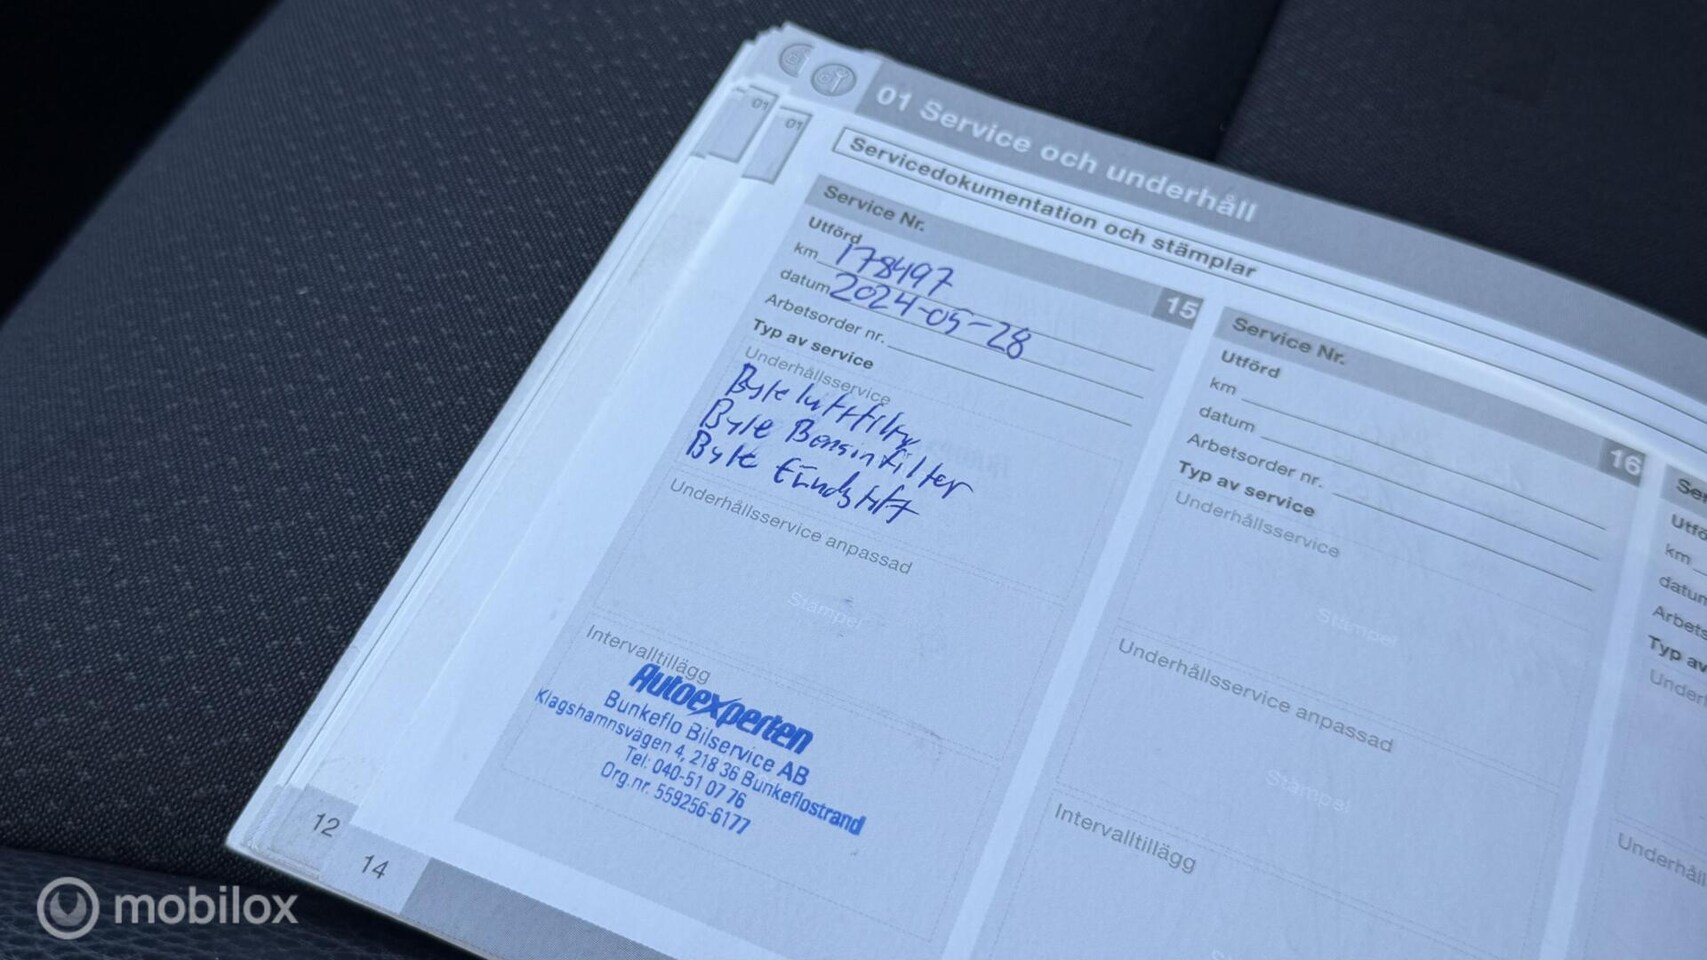 01 Service och underhåll
01
01
Servicedokumentation och stämplar
Service Nr.
15
Utförd
km 178497
datum 2024-05-28
Arbetsorder nr.
Typ av service
Underhållsservice
Byte luftfilter
Byte Bensinfilter
Byte tändstift
Underhållsservice anpassad
Stämpel
Intervalltillägg
Autoexperten
Bunkeflo Bilservice AB
Klagshamnsvägen 4, 218 36 Bunkeflostrand
Tel: 040-51 07 76
Org.nr. 559256-6177
Service Nr.
16
Utförd
km
datum
Arbetsorder nr.
Typ av service
Underhållsservice
Stämpel
Underhållsservice anpassad
Stämpel
Intervalltillägg
km
12
14
mobilox